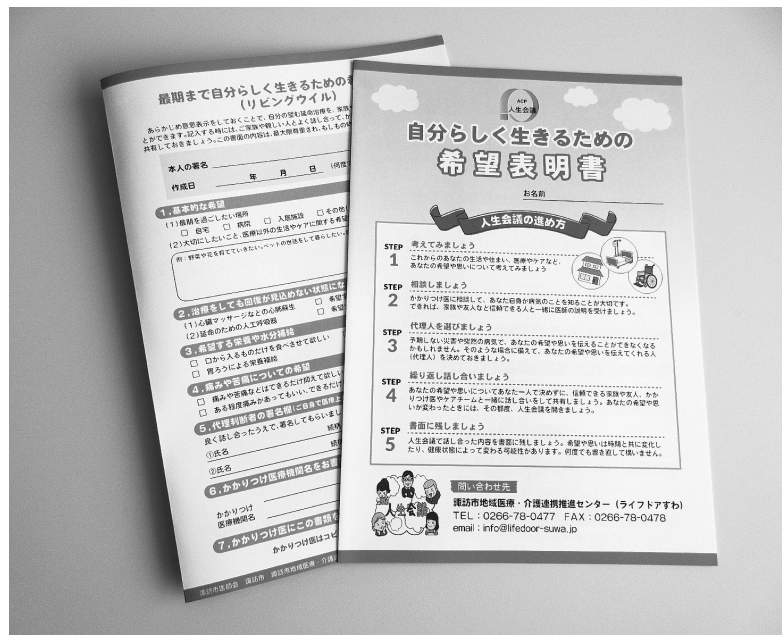 最期まで自分らしく生きるための
(リビングウイル)
あらかじめ意思表示をしておくことで、自分の望む延命治療を、家族や
とができます。記入する時には、ご家族や親しい人とよく話し合って、か
共有しておきましょう。この書面の内容は、最大限尊重され、もしもの時
本人の署名
作成日 年 月 日 (何度
1.基本的な希望
(1)最期を過ごしたい場所
□ 自宅 □ 病院 □ 入居施設 □ その他(
(2)大切にしたいこと、医療以外の生活やケアに関する希望
例:野菜や花を育てていきたい。ペットの世話をして暮らしたい。
2.治療をしても回復が見込めない状態に
(1)心臓マッサージなどの心肺蘇生 □ 希望
(2)延命のための人工呼吸器 □ 希望
3.希望する栄養や水分補給
□ 口から入るものだけを食べさせて欲しい
□ 胃ろうによる栄養補給
4.痛みや苦痛についての希望
□ 痛みや苦痛などはできるだけ抑えて欲しい
□ ある程度痛みがあってもいい、できるだけ
5.代理判断者の署名欄(ご自身で医療上
良く話し合ったうえで、署名してもらいまし
①氏名 続柄
②氏名 続柄
6.かかりつけ医療機関名をお書
かかりつけ
医療機関名
7.かかりつけ医にこの書類を
かかりつけ医はコピ
諏訪市医師会 諏訪市 諏訪市地域医療・介護
ACP
人生会議
自分らしく生きるための
希望表明書
お名前
人生会議の進め方
STEP 1 考えてみましょう
これからのあなたの生活や住まい、医療やケアなど、
あなたの希望や思いについて考えてみましょう
STEP 2 相談しましょう
かかりつけ医に相談して、あなた自身が病気のことを知ることが大切です。
できれば、家族や友人など信頼できる人と一緒に医師の説明を受けましょう。
STEP 3 代理人を選びましょう
予期しない災害や突然の病気で、あなたの希望や思いを伝えることができなくなる
かもしれません。そのような場合に備えて、あなたの希望や思いを伝えてくれる人
(代理人)を決めておきましょう。
STEP 4 繰り返し話し合いましょう
あなたの希望や思いについてあなた一人で決めずに、信頼できる家族や友人、かか
りつけ医やケアチームと一緒に話し合いをして共有しましょう。あなたの希望や思
いが変わったときには、その都度、人生会議を開きましょう。
STEP 5 書面に残しましょう
人生会議で話し合った内容を書面に残しましょう。希望や思いは時間と共に変化し
たり、健康状態によって変わる可能性があります。何度でも書き直して構いません。
人生会議
問い合わせ先
諏訪市地域医療・介護連携推進センター(ライフドアすわ)
TEL:0266-78-0477 FAX:0266-78-0478
email:info@lifedoor-suwa.jp